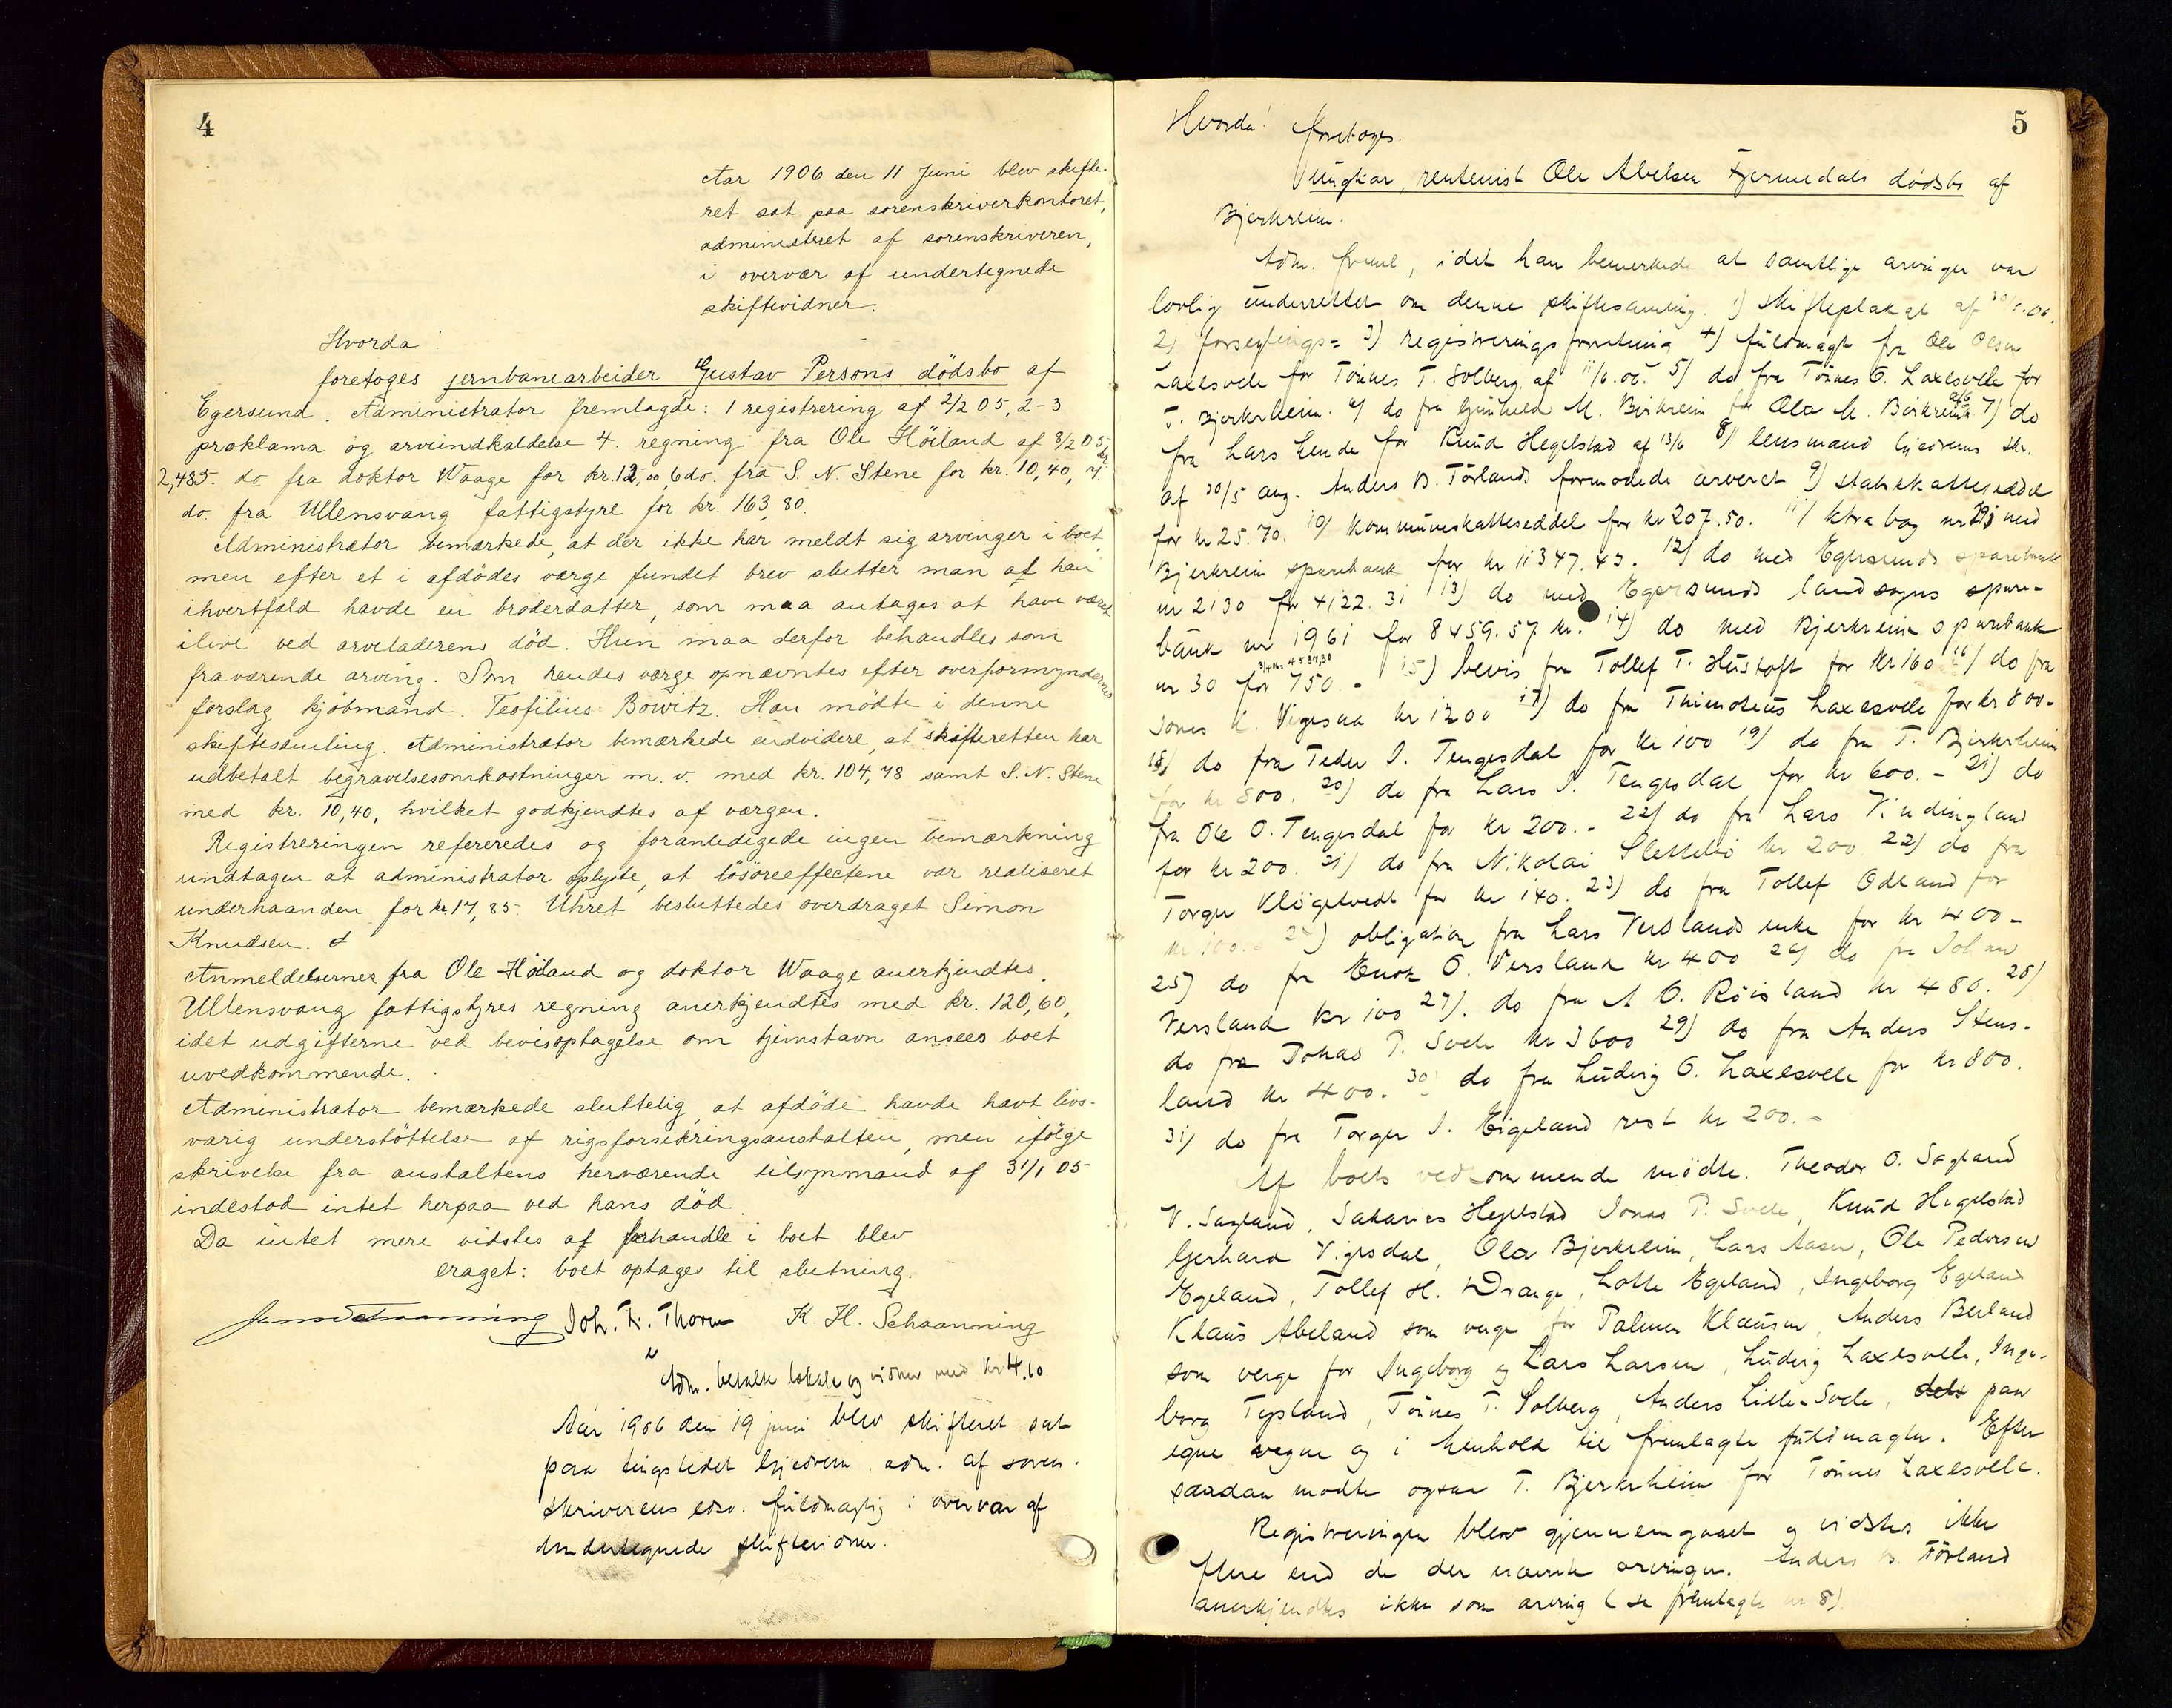 4
Aar 1906 den 11 Juni blev skifte-
ret sat paa sorenskriverkontoret,
administreret af sorenskriveren,
i overvær af undertegnede
skiftevidner.
Hvorda
foretoges jernbanearbeider Gustav Persons dödsbo af
Egersund. Administrator fremlagde: 1 registrering af 2/2 05, 2-3
proklama og arveindkaldelse 4. regning fra Ole Höiland af 8/2 05, kr.
2,485. do fra doktor Waage for kr. 12,00, 6 do. fra S. N. Stene for kr. 10,40, 7.
do. fra Ullensvang fattigstyre for kr. 163,80.
Administrator bemærkede, at der ikke har meldt sig arvinger i boet,
men efter et i afdödes værge fundet brev slutter man af han
ihvertfald havde en broderdatter, som maa antages at have været
ilive ved arveladerens död. Hun maa derfor behandles som
fraværende arving. Som hendes værge opnævntes efter overformyndernes
forslag kjöbmand. Teofilius Bowitz. Han mödte i denne
skiftesamling. Administrator bemærkede endvidere, at skifteretten har
udbetalt begravelsesomkostninger m. v. med kr. 104,78 samt S. N. Stene
med kr. 10,40, hvilket godkjendtes af værgen.
Registreringen refereredes og foranledigede ingen bemærkning
undtagen at administrator oplyste, at lösöreeffectene var realiseret
underhaanden for kr. 17,85. Uhret besluttedes overdraget Simon
Knudsen.
Anmeldelserne fra Ole Höiland og doktor Waage anerkjendtes.
Ullensvang fattigstyres regning anerkjendtes med kr. 120,60,
idet udgifterne ved bevisoptagelse om hjemstavn ansees boet
uvedkommende.
Administrator bemærkede sluttelig, at afdöde havde havt livs-
varig understöttelse af rigsforsikringsanstalten, men ifölge
skrivelse fra anstaltens herværende tilsynmand af 31/1 05
indestod intet herpaa ved hans död.
Da intet mere vidstes af forhandle i boet blev
eraget: boet optages til slutning.
Joh. Fr. Thorn K. H. Schanning
Adm. betalte lokale og vidner med kr 4.60
Aar 1906 den 19 juni blev skifteret sat
paa tingstedet Gjedrem, adm. af soren-
skriverens edsv. fuldmægtig i overvær af
undertegnede skiftevidner.
5
Hvorda! foretoges.
Ungkar, rentenist Ole Abelsen Fjermedals dödsbo af
Bjerkreim.
Adm. freml, idet han bemerkede at samtlige arvinger var
lovlig underrettet om denne skiftesamling. 1) skifteplakat af 30/5.06.
2) forseglings= 3) registreringsforretning 4) fuldmagt fra Ole Olsen
Laxesvele for Tönnes T. Solberg af 11/6.06. 5) do fra Tönnes O. Laxesvele for
T. Bjerkrheim. 6) do fra Gunhild M. Birkreim for Ola M. Birkreim 7) do
fra Lars Eende for Knud Hegelstad af 13/6 8) lensmand Gjedrems skr.
af 30/5 ang. Anders B. Törlands formodede arveret 9) statsskatteseddel
for kr 25.70. 10) kommuneskatteseddel for kr 207.50. 11) ktra bog nr 293 med
Bjerkreim sparebank for kr 11347.43. 12) do med Egersunds sparebank
nr 2130 for 4122.31 13) do med Egersunds landsogns spare-
bank nr 1961 for 8459.57 kr. 14) do med Bjerkreim sparebank
nr 30 for 750.- 15) bevis fra Tollef T. Hustoft for kr 160 16) do fra
Jonas K. Vigesaa kr 1200 17) do fra Thimoteus Laxesvele for kr 800-
18) do fra Peder J. Tengesdal for kr 100 19) do fra T. Bjerkrheim
for kr 800. 20) do fra Lars J. Tengesdal for kr 600.- 21) do
fra Ole O. Tengesdal for kr 200.- 22) do fra Lars Vindingland
for kr 200. 21) do fra Nikolai Slettebö kr 200 22) do fra
Torger Klögetvedt for kr 140. 23) do fra Tollef Odland for
kr 100.- 24) obligation fra Lars Verslands enke for kr 400-
25) do fra Enok O. Versland kr 400 26) do fra Johan
Versland kr 100 27). do fra A O. Röisland kr 480. 28)
do fra Jonas P. Svele kr 3600 29) do fra Anders Stens-
land kr 400. 30) do fra Ludvig O. Laxesvele for kr 800.
31) do fra Torger J. Eigeland rest kr 200.-
Af boets vedkommende mödte. Theodor O. Sagland
V. Sagland, Sakarias Hegelstad Jonas P. Svele, Knud Hegelstad
Gerhard Vigesdal, Ola Bjerkreim, Lars Aasen, Ole Pedersen
Egeland, Tollef H. Drange, Lotte Egeland, Ingeborg Egeland
Klaus Abeland som verge for Palmer Klausen, Anders Berland
som verge for Ingeborg og Lars Larsen, Ludvig Laxesvele, Inge-
borg Tysland, Tönnes T. Solberg, Anders Lille-Svele, dels paa
egne vegne og i henhold til fremlagte fuldmagter. Efter
saadan mödte ogsaa T. Bjerkrheim for Tönnes Laxesvele.
Registreringen blev gjennemgaaet og vidstes ikke
flere end de der nævnte arvinger. Anders B. Törland
anerkjendtes ikke som arving (se fremlagte nr 8)